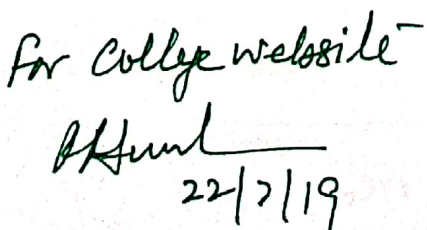 For College website
22/7/19